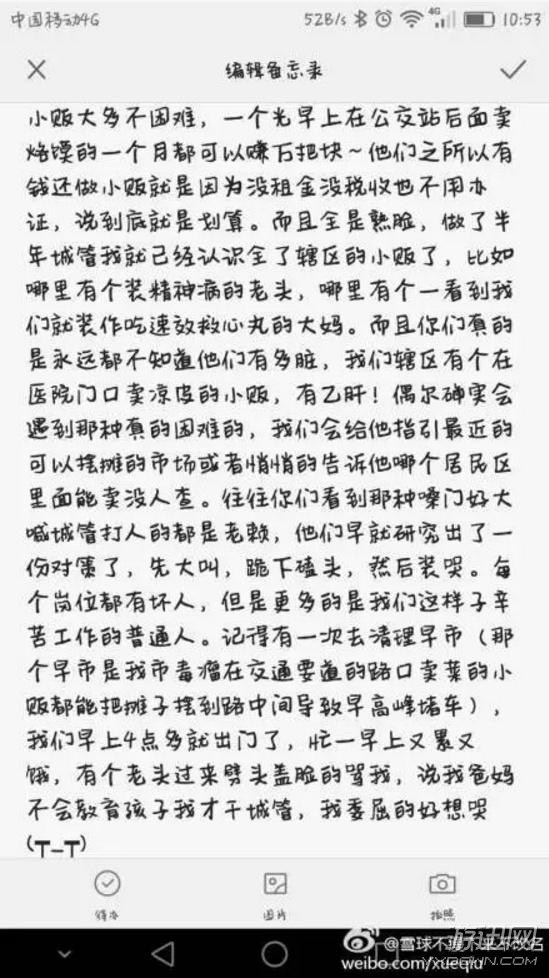 中国移动4G 52B/s 4G 10:53
编辑备忘录
小贩大多不困难，一个光早上在公交站后面卖
烙馍的一个月都可以赚万把块～他们之所以有
钱还做小贩就是因为没租金没税收也不用办
证，说到底就是划算。而且全是熟脸，做了半
年城管我就已经认识全了辖区的小贩了，比如
哪里有个装精神病的老头，哪里有个一看到我
们就装作吃速效救心丸的大妈。而且你们真的
是永远都不知道他们有多脏，我们辖区有个在
医院门口卖凉皮的小贩，有乙肝！偶尔确实会
遇到那种真的困难的，我们会给他指引最近的
可以摆摊的市场或者悄悄的告诉他哪个居民区
里面能卖没人查。往往你们看到那种嗓门好大
喊城管打人的都是老赖，他们早就研究出了一
份对策了，先大叫，跪下磕头，然后装哭。每
个岗位都有坏人，但是更多的是我们这样子辛
苦工作的普通人。记得有一次去清理早市（那
个早市是我市毒瘤在交通要道的路口卖菜的小
贩都能把摊子摆到路中间导致早高峰堵车），
我们早上4点多就出门了，忙一早上又累又
饿，有个老头过来劈头盖脸的骂我，说我爸妈
不会教育孩子我才干城管，我委屈的好想哭
(┬_┬)
待办 图片 拍照
@雪球不瘦不来不改名
weibo.com/xueqiu